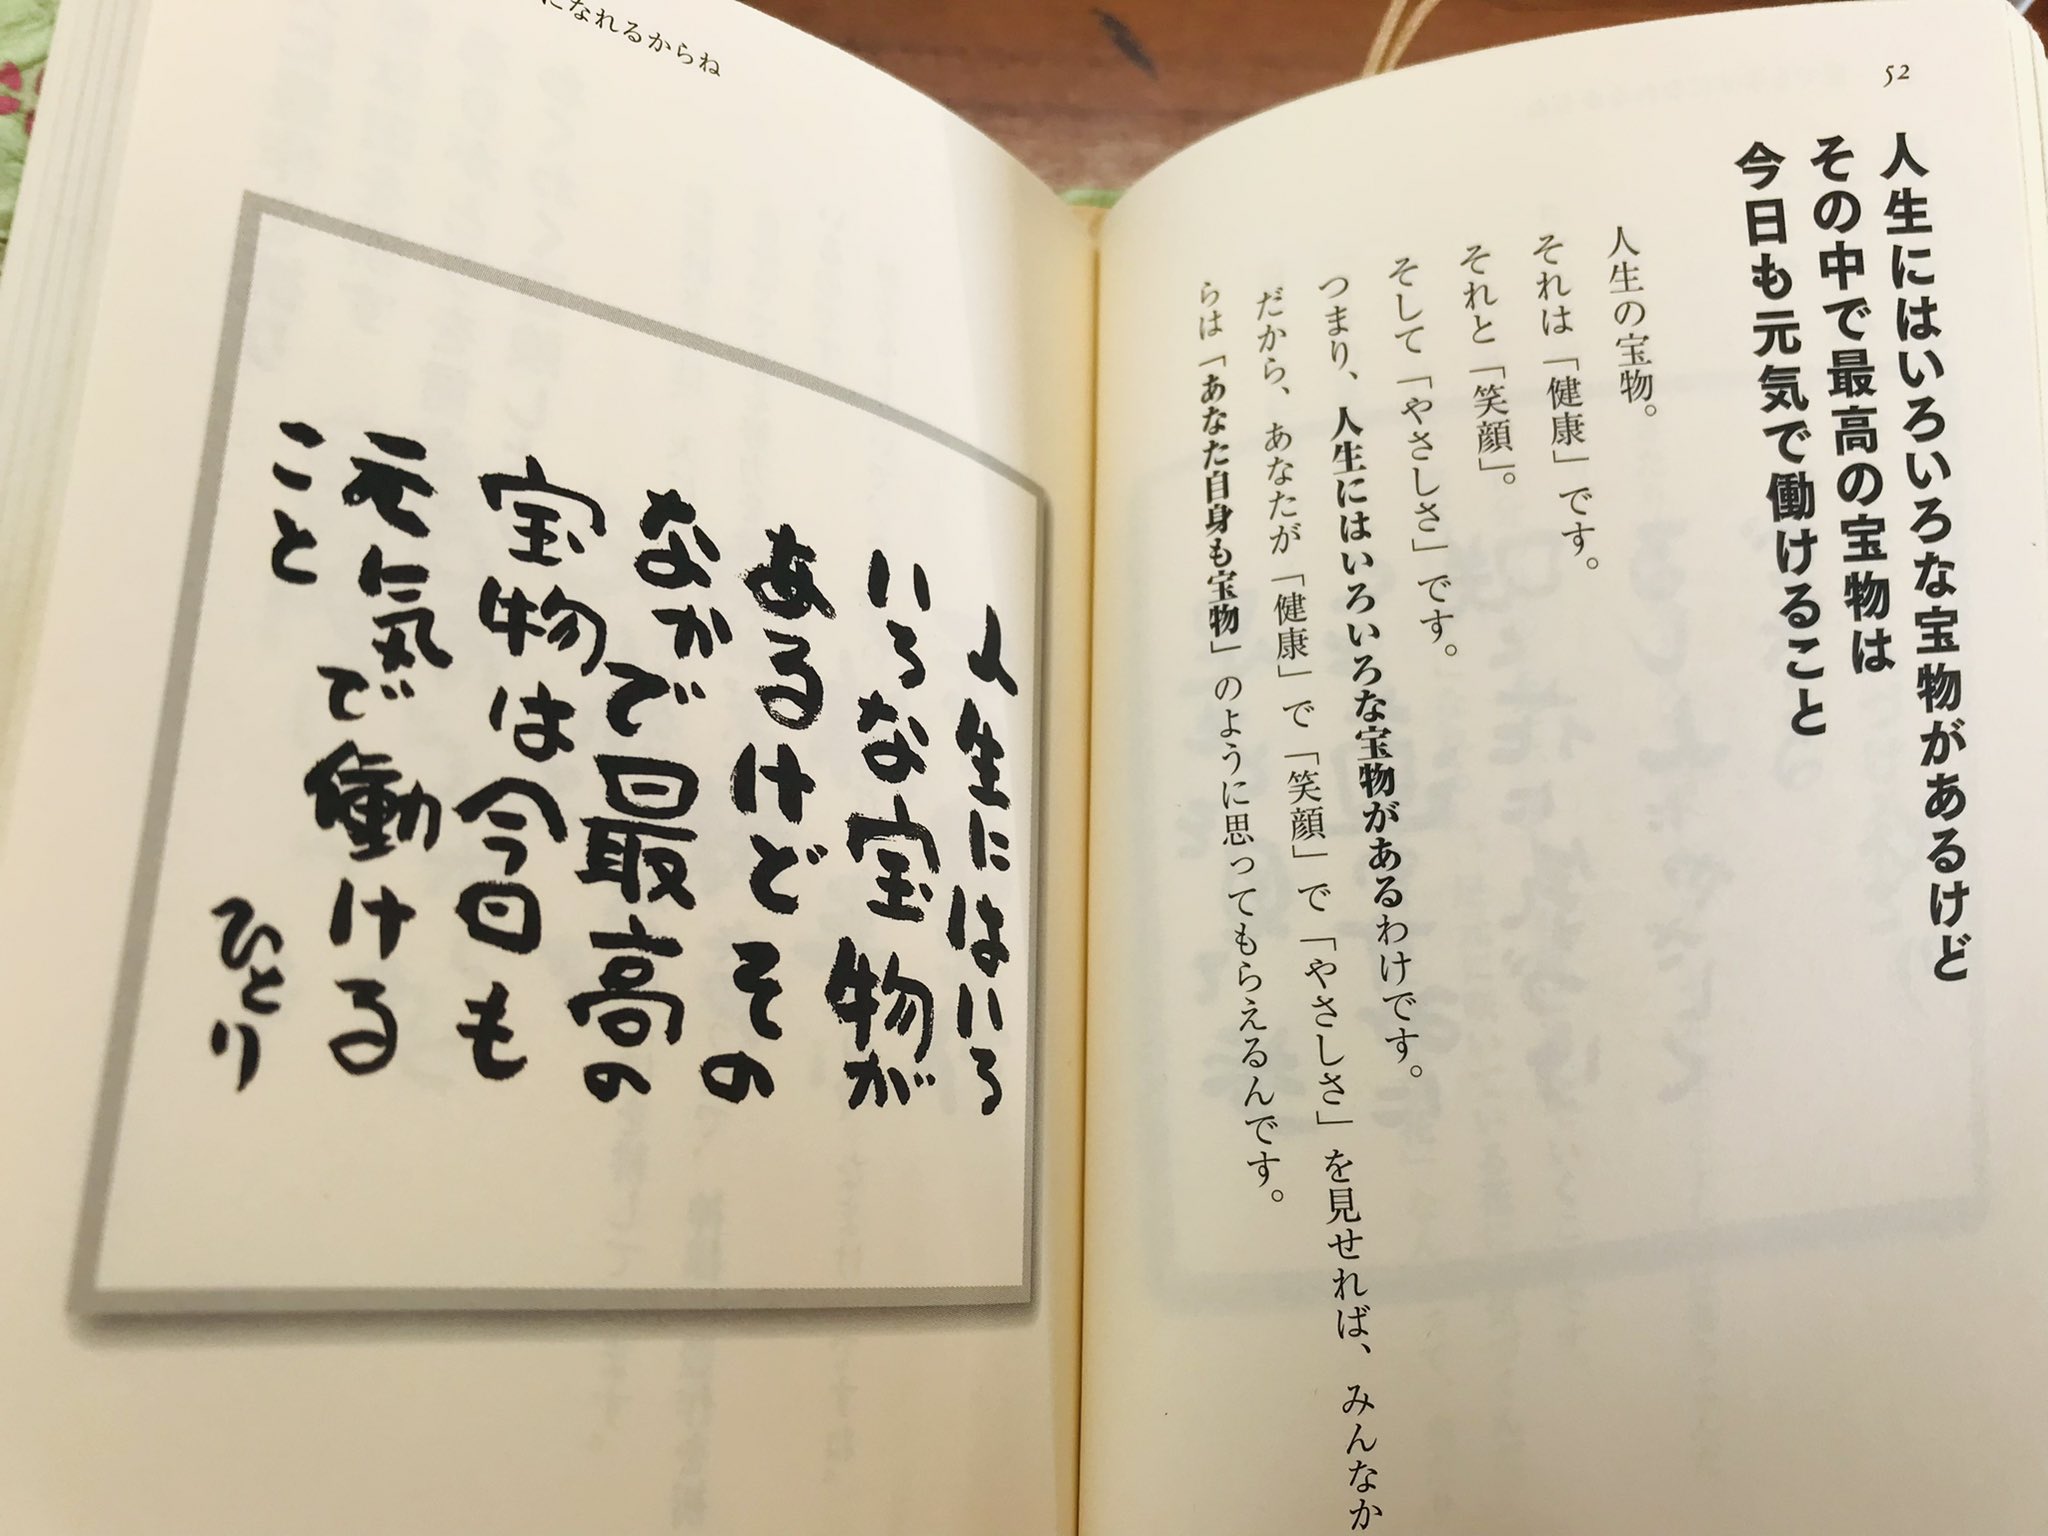 52
人生にはいろいろな宝物があるけど
その中で最高の宝物は
今日も元気で働けること
人生の宝物。
それは「健康」です。
それと「笑顔」。
そして「やさしさ」です。
つまり、人生にはいろいろな宝物があるわけです。
だから、あなたが「健康」で「笑顔」で「やさしさ」を見せれば、みんなか
らは「あなた自身も宝物」のように思ってもらえるんです。
になれるからね
人生にはいろ
いろな宝物が
あるけどその
なかで最高の
宝物は今日も
元気で働ける
こと
ひとり